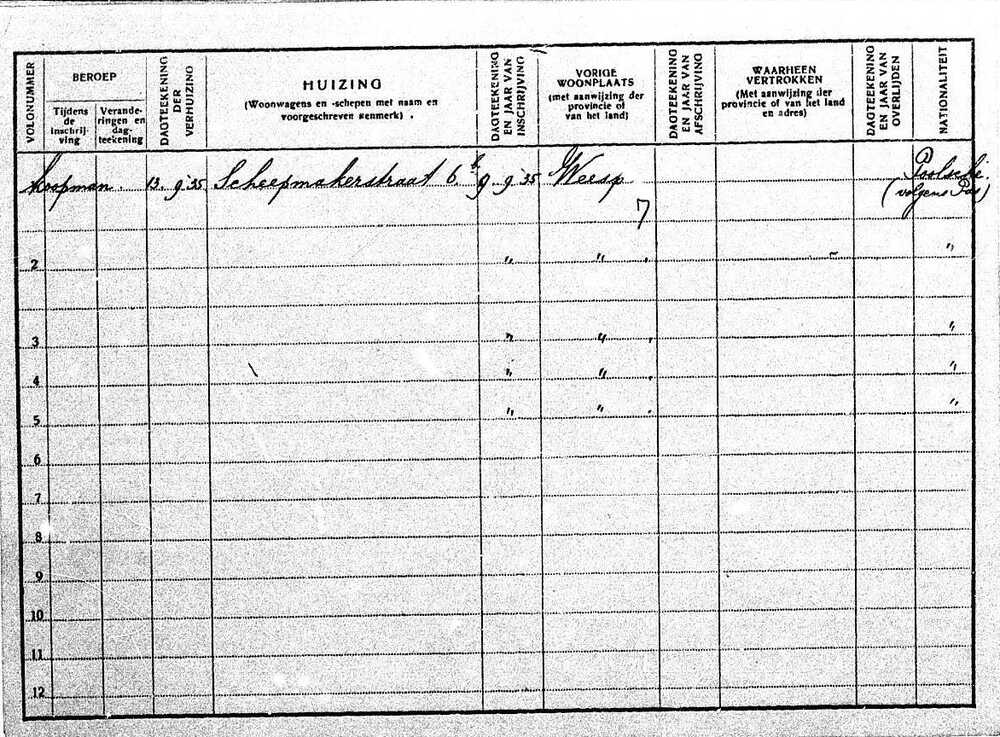 VOLGNUMMER
BEROEP
Tijdens de inschrijving
Veranderingen en dagteekening
DAGTEEKENING DER VERHUIZING
HUIZING
(Woonwagens en -schepen met naam en
voorgeschreven kenmerk)
DAGTEEKENING EN JAAR VAN INSCHRIJVING
VORIGE WOONPLAATS
(met aanwijzing der provincie of van het land)
DAGTEEKENING EN JAAR VAN AFSCHRIJVING
WAARHEEN VERTROKKEN
(Met aanwijzing der provincie of van het land en adres)
DAGTEEKENING EN JAAR VAN OVERLIJDEN
NATIONALITEIT
Koopman. 13. 9 '35 Scheepmakerstraat 6. 9. 9 '35 Weesp Poolsche.
(volgens Pas)
7
2 " " "
3 " " "
4 " " "
5 " " "
6
7
8
9
10
11
12